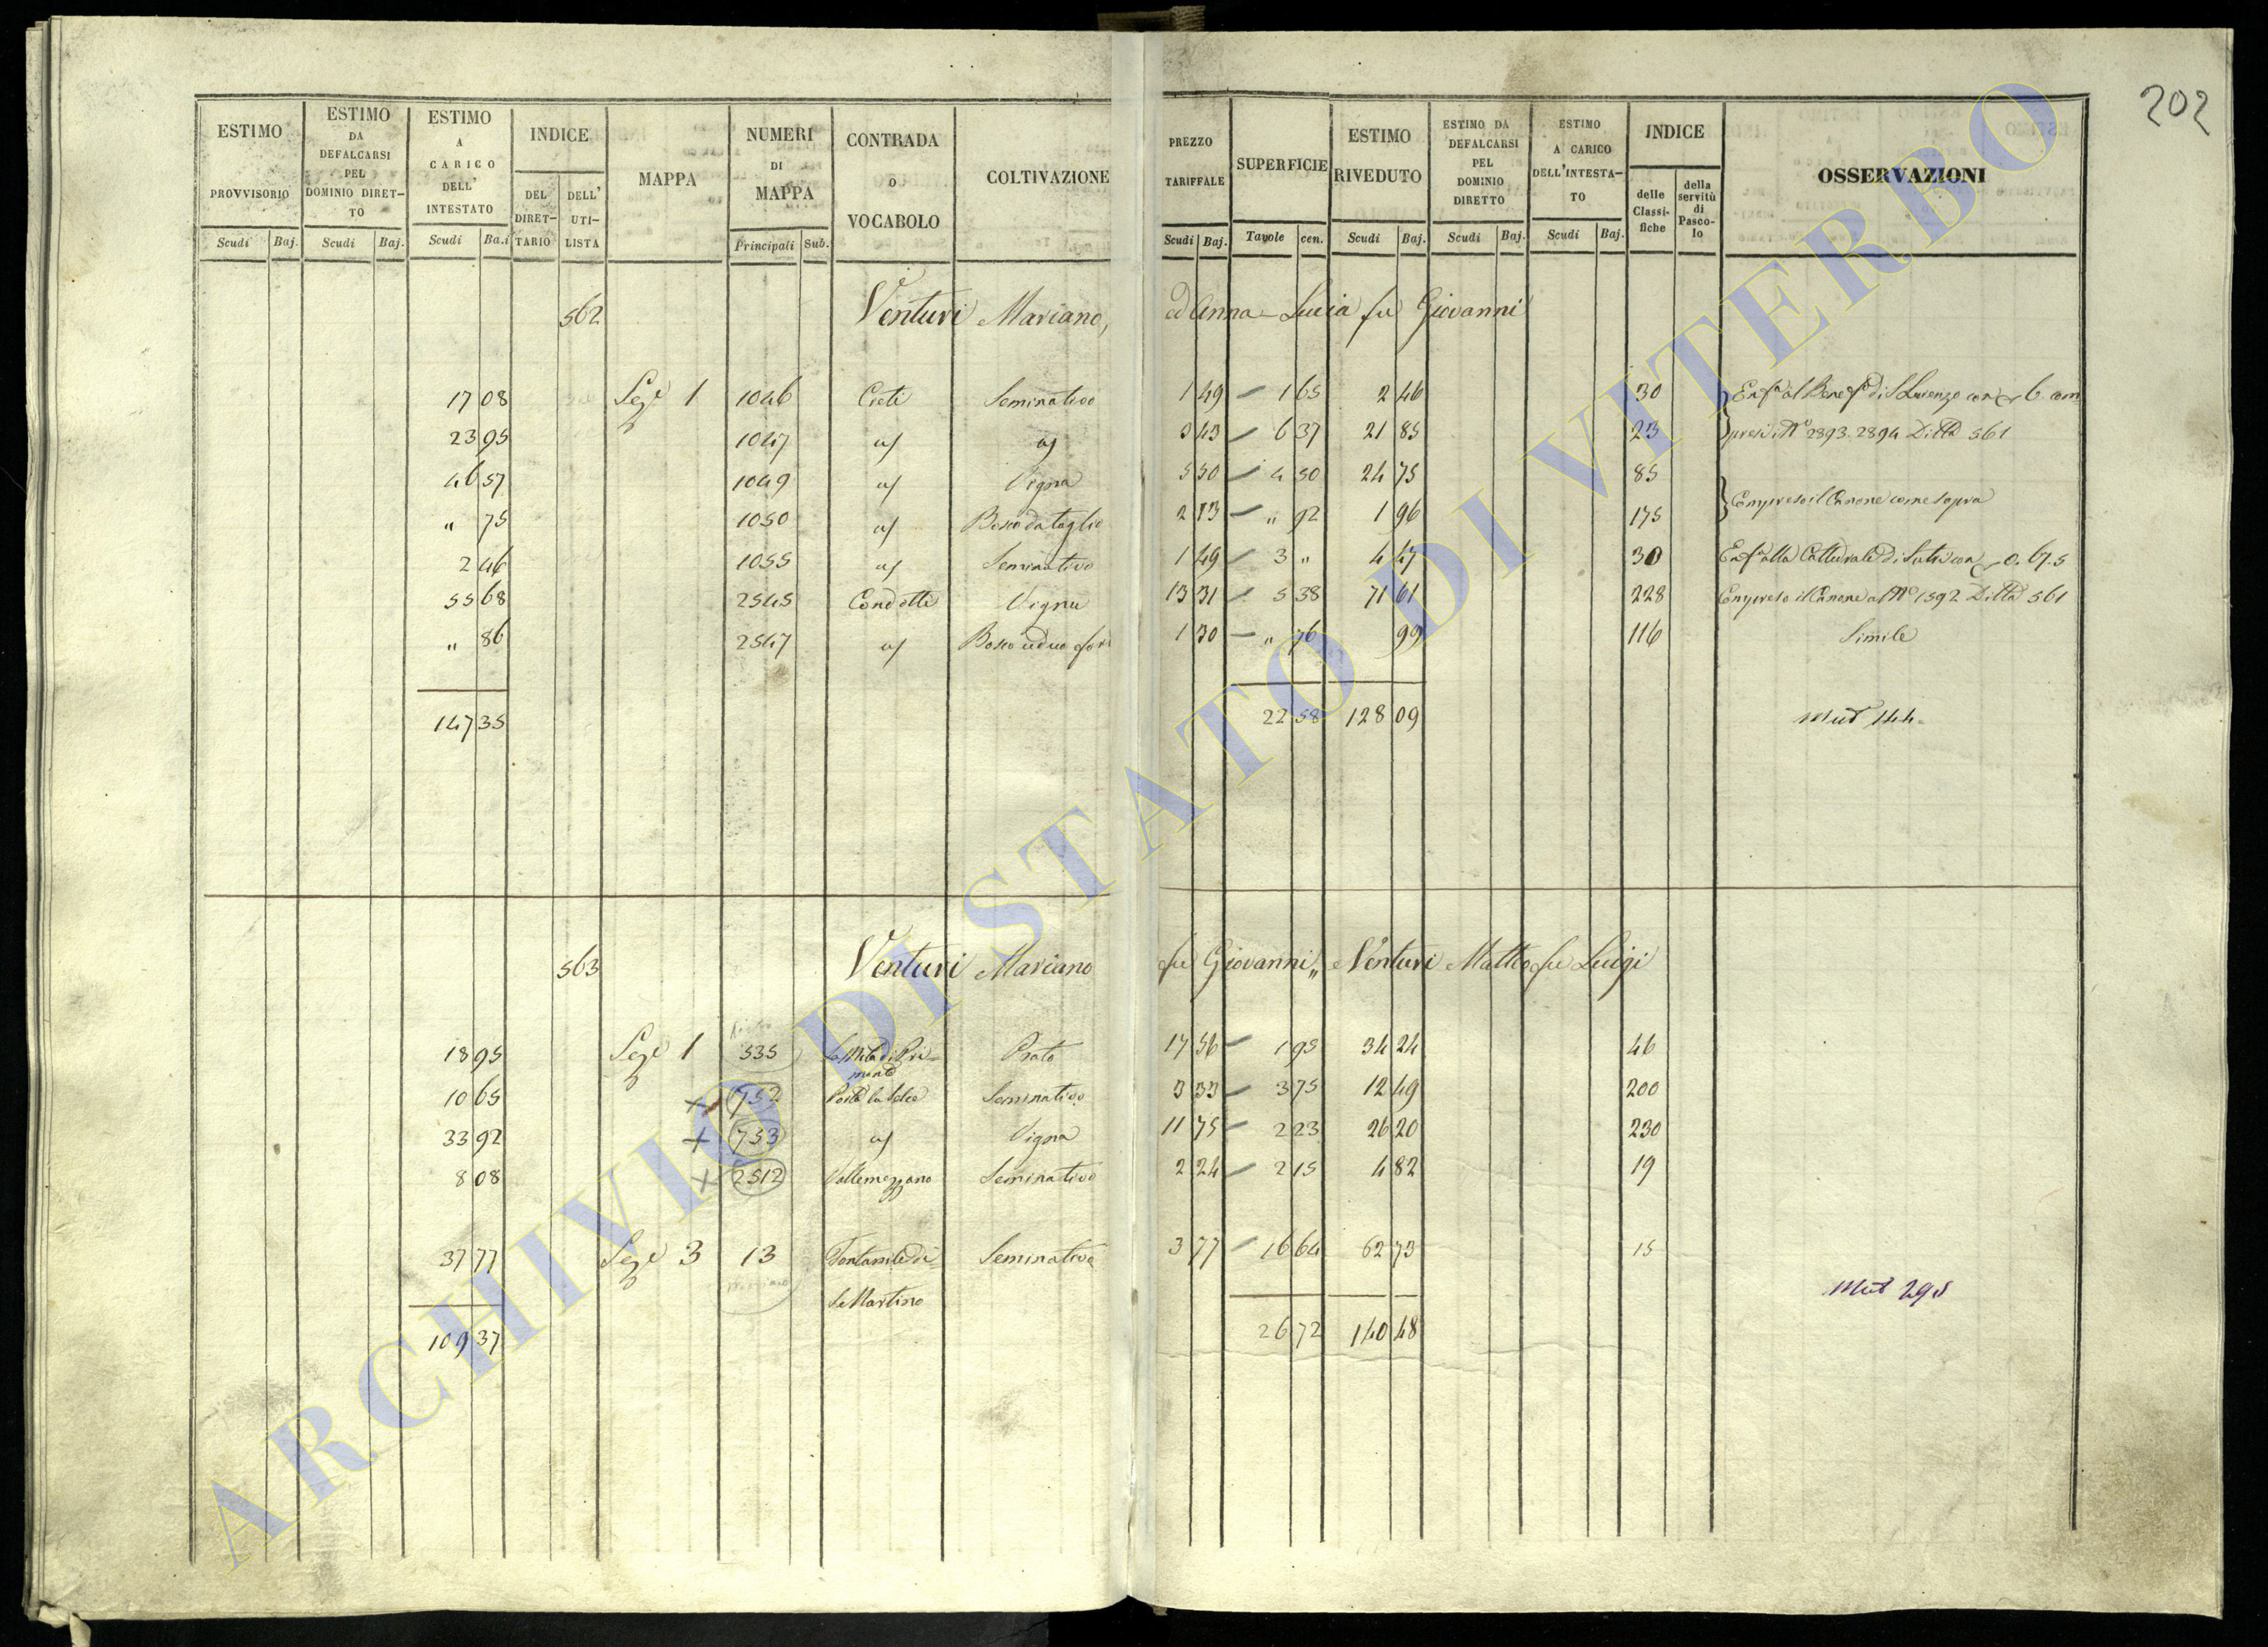 202
ESTIMO PROVVISORIO
ESTIMO DA DEFALCARSI PEL DOMINIO DIRETTO
ESTIMO A CARICO DELL' INTESTATO
INDICE
DEL DIRETTARIO
DELL' UTILISTA
MAPPA
NUMERI DI MAPPA
CONTRADA O VOCABOLO
COLTIVAZIONE
PREZZO TARIFFALE
SUPERFICIE
ESTIMO RIVEDUTO
ESTIMO DA DEFALCARSI PEL DOMINIO DIRETTO
ESTIMO A CARICO DELL'INTESTATO
INDICE
delle Classifiche
della servitù di Pascolo
OSSERVAZIONI
Scudi Baj. Scudi Baj. Scudi Ba.i Principali Sub. Scudi Baj. Tavole cen. Scudi Baj. Scudi Baj. Scudi Baj.
562 Venturi Mariano, ed Anna-Lucia fu Giovanni
17 08 Seze 1 1046 Creti Seminativo 1 49 1 65 2 46 30
23 95 1047 3 43 6 37 21 85 23 2893. 2894 Ditta 561
46 57 1049 Vigna 5 50 4 50 24 75 85
" 75 1050 Bosco da taglio 2 13 " 92 1 96 175 Compreso il Canone come sopra
2 46 1055 Seminativo 1 49 3 " 4 47 30
55 68 2545 Condotti Vigna 13 31 5 38 71 61 228 Compreso il Canone al N° 1592 Ditta 561
" 86 2547 Bosco ceduo 1 30 " 76 99 116 Simile
147 35 22 58 128 09 Mut 144
563 Venturi Mariano fu Giovanni, e Venturi Matteo fu Luigi
18 95 Seze 1 535 Prato 17 56 1 95 34 24 46
10 65 752 Seminativo 3 33 3 75 12 49 200
33 92 753 Vigna 11 75 2 23 26 20 230
8 08 2512 Vallemezzano Seminativo 2 24 2 15 4 82 19
37 77 Seze 3 13 Fontanile di Seminativo 3 77 16 64 62 73 15
S. Martino
Mut 295
109 37 26 72 140 48
ARCHIVIO DI STATO DI VITERBO